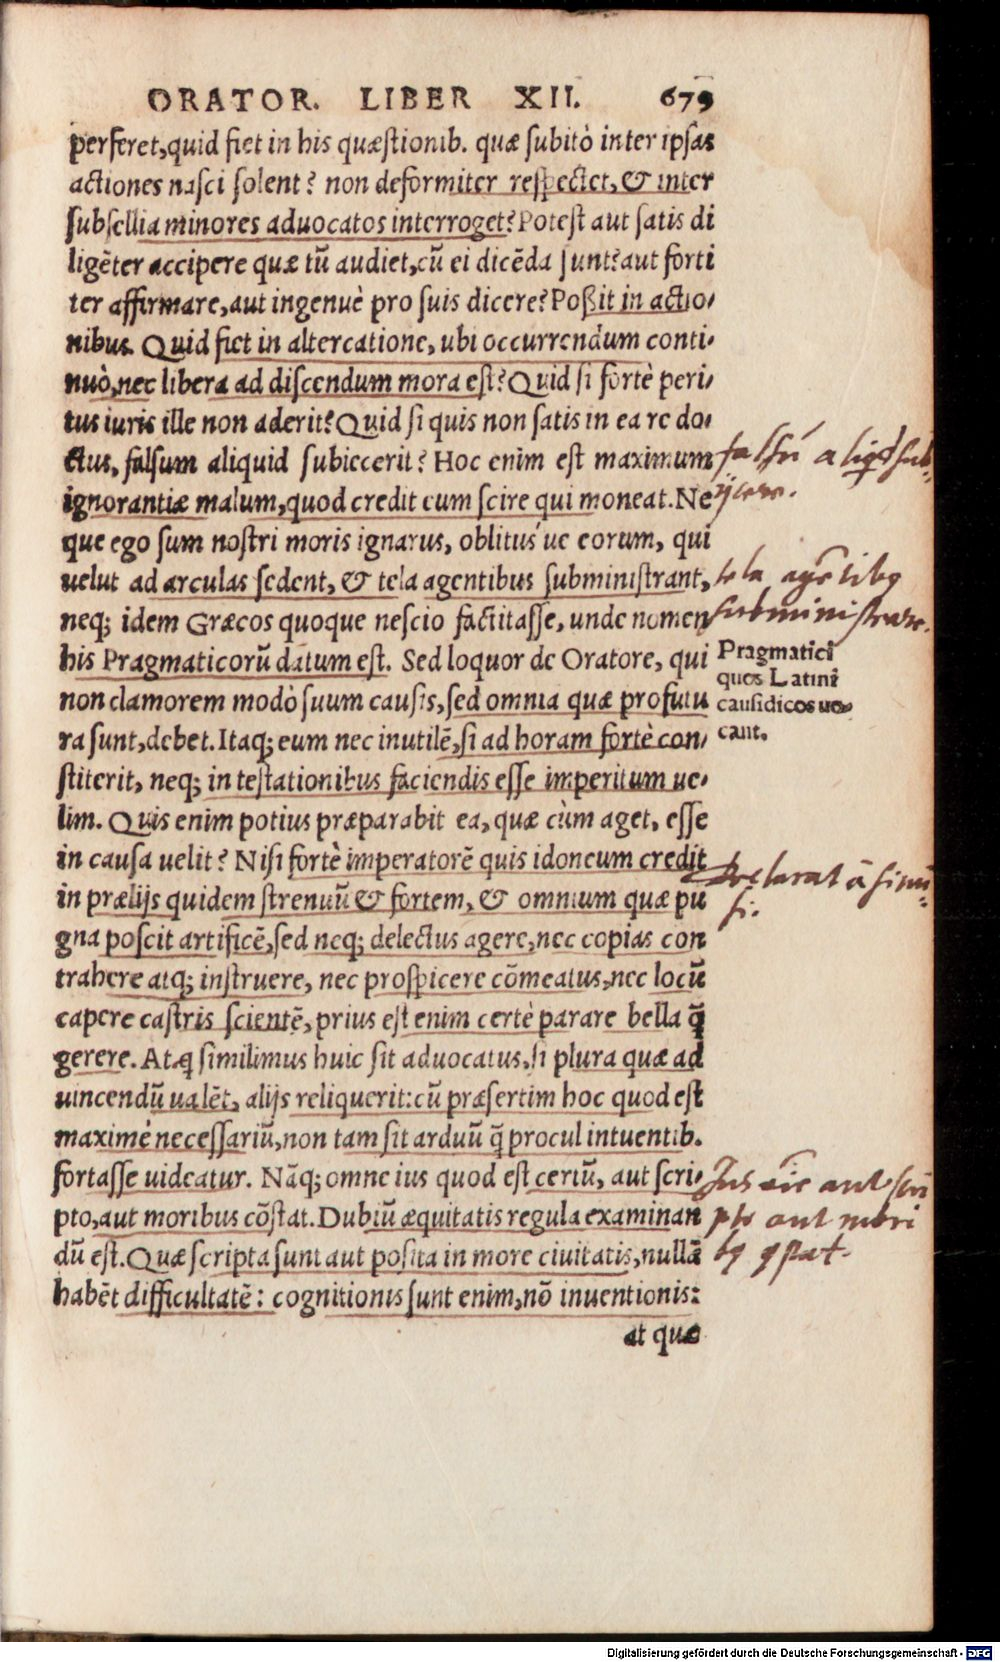 ORATOR. LIBER XII. 679
perferet, quid fiet in his quæstionib. quæ subitò inter ipsas
actiones nasci solent? non deformiter respectet, & inter
subsellia minores aduocatos interroget? Potest aut satis di
ligēter accipere quæ tū audiet, cū ei dicēda sunt? aut forti
ter affirmare, aut ingenuè pro suis dicere? Poßit in actio-
nibus. Quid fiet in altercatione, ubi occurrendum conti-
nuò, nec libera ad discendum mora est? Quid si fortè peri-
tus iuris ille non aderit? Quid si quis non satis in ea re do-
ctus, falsum aliquid subiecerit? Hoc enim est maximum
ignorantiæ malum, quod credit eum scire qui moneat. Ne
que ego sum nostri moris ignarus, oblitus´ue eorum, qui
uelut ad arculas sedent, & tela agentibus subministrant,
neq; idem Græcos quoque nescio factitasse, unde nomen
his Pragmaticorū datum est. Sed loquor de Oratore, qui
non clamorem modò suum causis, sed omnia quæ profutu
ra sunt, debet. Itaq; eum nec inutilē, si ad horam fortè con-
stiterit, neq; in testationibus faciendis esse imperitum ue-
lim. Quis enim potius præparabit ea, quæ cùm aget, esse
in causa uelit? Nisi fortè imperatorē quis idoneum credit
in prælijs quidem strenuū & fortem, & omnium quæ pu
gna poscit artificē, sed neq; delectus agere, nec copias con
trahere atq; instruere, nec prospicere cōmeatus, nec locū
capere castris scientē, prius est enim certè parare bella q̄
gerere. Atq̄ simillimus huic sit aduocatus, si plura quæ ad
uincendū ualēt, alijs reliquerit: cū præsertim hoc quod est
maximè necessariū, non tam sit arduū q̄ procul intuentib.
fortasse uideatur. Nāq; omne ius quod est certū, aut scri-
pto, aut moribus cōstat. Dubiū æquitatis regula examinan
dū est. Quæ scripta sunt aut posita in more ciuitatis, nullā
habēt difficultatē: cognitionis sunt enim, nō inuentionis:
at quæ
falsū aliqd sub-
ijcere.
tela agētibq
subministrare.
Pragmatici
quos Latini
causidicos uo-
cant.
Declarat à simi
li.
Jus oē aut scri
pto aut mori
bq ꝯstat.